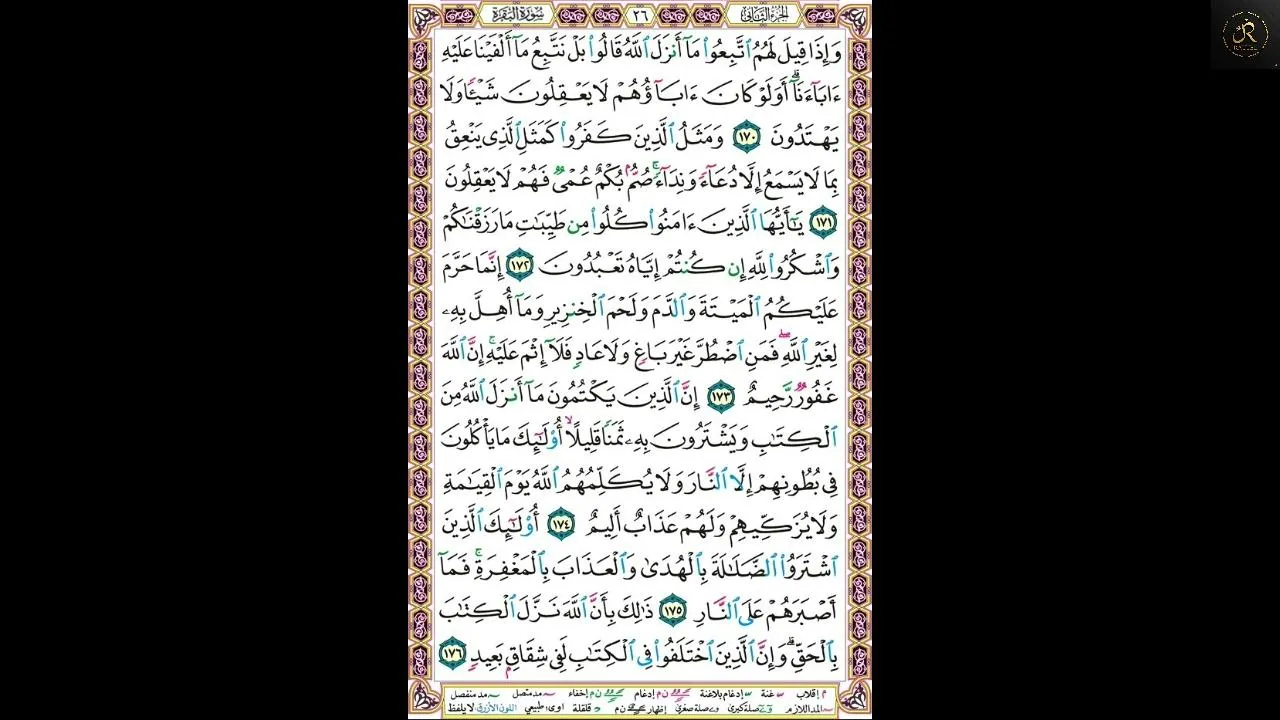 الجزء الثاني ٢٦ سورة البقرة
وَإِذَا قِيلَ لَهُمُ ٱتَّبِعُوا۟ مَآ أَنزَلَ ٱللَّهُ قَالُوا۟ بَلْ نَتَّبِعُ مَآ أَلْفَيْنَا عَلَيْهِ
ءَابَآءَنَآ ۗ أَوَلَوْ كَانَ ءَابَآؤُهُمْ لَا يَعْقِلُونَ شَيْـًٔا وَلَا
يَهْتَدُونَ ١٧٠ وَمَثَلُ ٱلَّذِينَ كَفَرُوا۟ كَمَثَلِ ٱلَّذِى يَنْعِقُ
بِمَا لَا يَسْمَعُ إِلَّا دُعَآءً وَنِدَآءً ۚ صُمٌّۢ بُكْمٌ عُمْىٌ فَهُمْ لَا يَعْقِلُونَ
١٧١ يَـٰٓأَيُّهَا ٱلَّذِينَ ءَامَنُوا۟ كُلُوا۟ مِن طَيِّبَـٰتِ مَا رَزَقْنَـٰكُمْ
وَٱشْكُرُوا۟ لِلَّهِ إِن كُنتُمْ إِيَّاهُ تَعْبُدُونَ ١٧٢ إِنَّمَا حَرَّمَ
عَلَيْكُمُ ٱلْمَيْتَةَ وَٱلدَّمَ وَلَحْمَ ٱلْخِنزِيرِ وَمَآ أُهِلَّ بِهِۦ
لِغَيْرِ ٱللَّهِ ۖ فَمَنِ ٱضْطُرَّ غَيْرَ بَاغٍ وَلَا عَادٍ فَلَآ إِثْمَ عَلَيْهِ ۚ إِنَّ ٱللَّهَ
غَفُورٌ رَّحِيمٌ ١٧٣ إِنَّ ٱلَّذِينَ يَكْتُمُونَ مَآ أَنزَلَ ٱللَّهُ مِنَ
ٱلْكِتَـٰبِ وَيَشْتَرُونَ بِهِۦ ثَمَنًا قَلِيلًا ۙ أُو۟لَـٰٓئِكَ مَا يَأْكُلُونَ
فِى بُطُونِهِمْ إِلَّا ٱلنَّارَ وَلَا يُكَلِّمُهُمُ ٱللَّهُ يَوْمَ ٱلْقِيَـٰمَةِ
وَلَا يُزَكِّيهِمْ وَلَهُمْ عَذَابٌ أَلِيمٌ ١٧٤ أُو۟لَـٰٓئِكَ ٱلَّذِينَ
ٱشْتَرَوُا۟ ٱلضَّلَـٰلَةَ بِٱلْهُدَىٰ وَٱلْعَذَابَ بِٱلْمَغْفِرَةِ ۚ فَمَآ
أَصْبَرَهُمْ عَلَى ٱلنَّارِ ١٧٥ ذَٰلِكَ بِأَنَّ ٱللَّهَ نَزَّلَ ٱلْكِتَـٰبَ
بِٱلْحَقِّ ۗ وَإِنَّ ٱلَّذِينَ ٱخْتَلَفُوا۟ فِى ٱلْكِتَـٰبِ لَفِى شِقَاقٍۭ بَعِيدٍ ١٧٦
م إقلاب غنة إدغام بلاغنة ن م إدغام ن م إخفاء مد متصل مد منفصل
المد اللازم صلة كبرى صلة صغرى إظهار ن م قلقلة اوى: طبيعي اللون الأزرق لا يلفظ